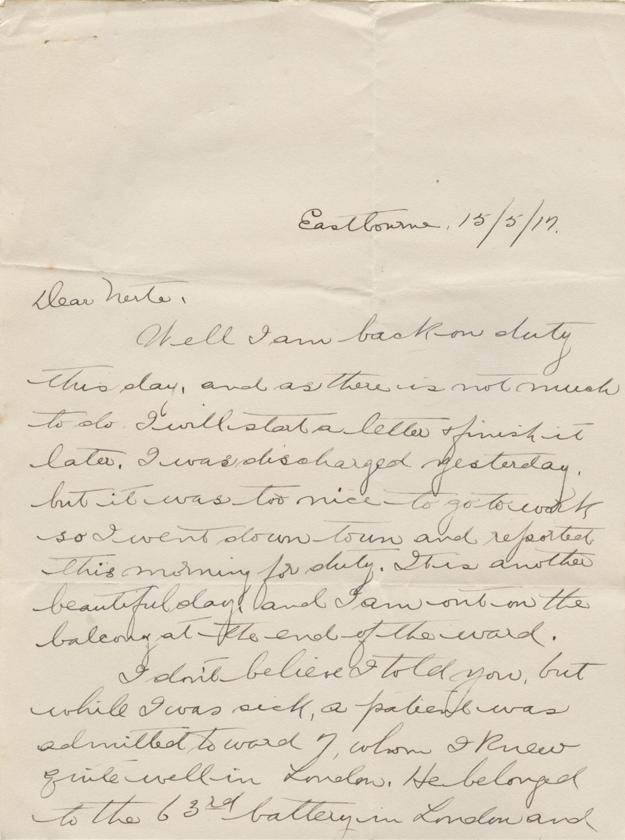 Eastbourne. 15/5/17.
Dear Nerte.
Well I am back on duty
this day, and as there is not much
to do I will start a letter & finish it
later. I was discharged yesterday.
but it was too nice to go to work
so I went down town and reported
this morning for duty. It is another
beautiful day, and I am out on the
balcony at the end of the ward.
I don't believe I told you, but
while I was sick, a patient was
admitted to ward 7, whom I knew
quite well in London. He belonged
to the 63rd battery in London and